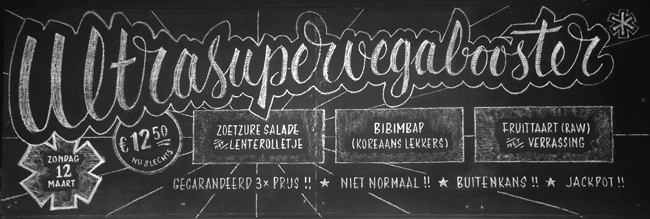 Ultrasupervegabooster*
ZONDAG
12
MAART
€ 12.50
NU SLECHTS
ZOETZURE SALADE
LENTEROLLETJE
BIBIMBAP
(KOREAANS LEKKERS)
FRUITTAART (RAW)
VERRASSING
GEGARANDEERD 3x PRIJS !! ★ NIET NORMAAL !! ★ BUITENKANS !! ★ JACKPOT !!